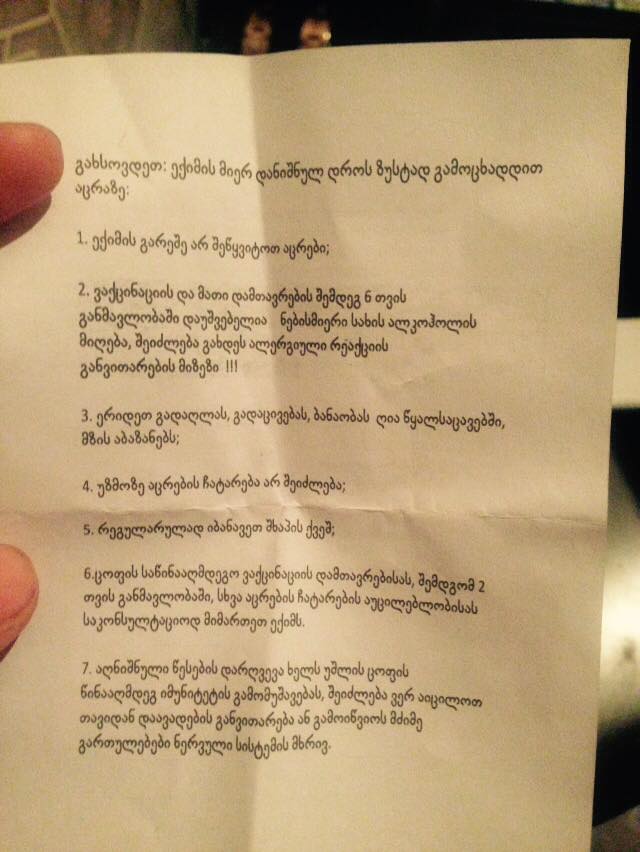 გახსოვდეთ: ექიმის მიერ დანიშნულ დროს ზუსტად გამოცხადდით
აცრაზე:
1. ექიმის გარეშე არ შეწყვიტოთ აცრები;
2. ვაქცინაციის და მათი დამთავრების შემდეგ 6 თვის
განმავლობაში დაუშვებელია ნებისმიერი სახის ალკოჰოლის
მიღება, შეიძლება გახდეს ალერგიული რეაქციის
განვითარების მიზეზი !!!
3. ერიდეთ გადაღლას, გადაცივებას, ბანაობას ღია წყალსაცავებში,
მზის აბაზანებს;
4. უზმოზე აცრების ჩატარება არ შეიძლება;
5. რეგულარულად იბანავეთ შხაპის ქვეშ;
6.ცოფის საწინააღმდეგო ვაქცინაციის დამთავრებისას, შემდგომ 2
თვის განმავლობაში, სხვა აცრების ჩატარების აუცილებლობისას
საკონსულტაციოდ მიმართეთ ექიმს.
7. აღნიშნული წესების დარღვევა ხელს უშლის ცოფის
წინააღმდეგ იმუნიტეტის გამომუშავებას, შეიძლება ვერ აიცილოთ
თავიდან დაავადების განვითარება ან გამოიწვიოს მძიმე
გართულებები ნერვული სისტემის მხრივ.